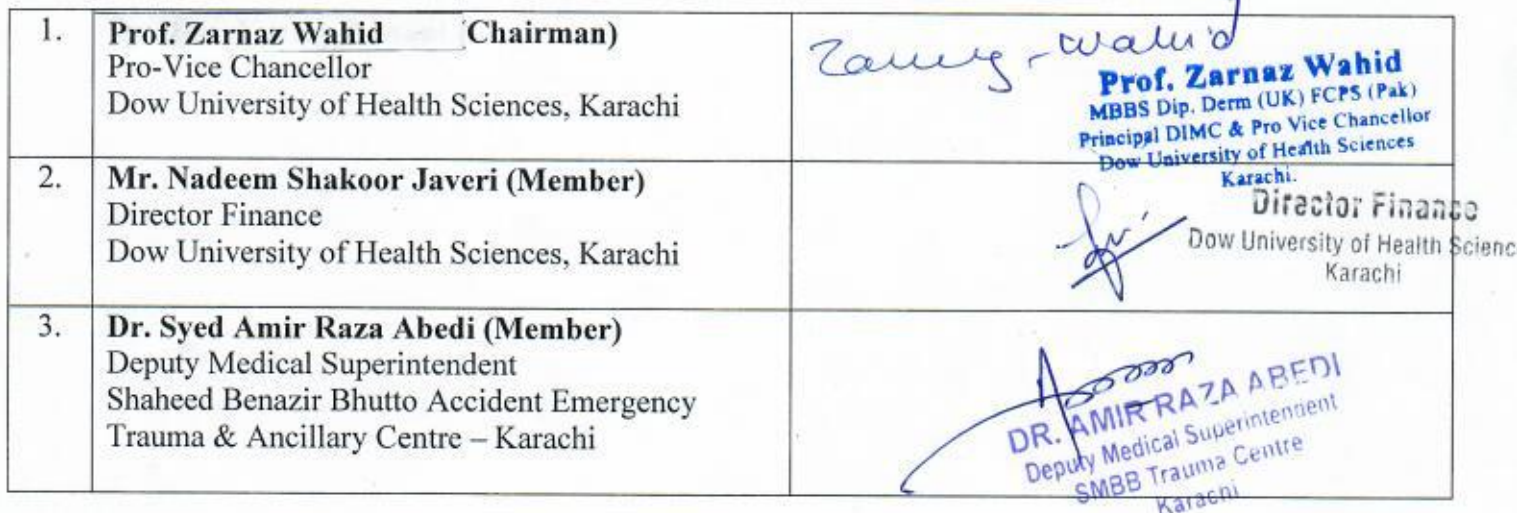 1. Prof. Zarnaz Wahid (Chairman)
Pro-Vice Chancellor
Dow University of Health Sciences, Karachi
Zarnaz-Wahid
Prof. Zarnaz Wahid
MBBS Dip. Derm (UK) FCPS (Pak)
Principal DIMC & Pro Vice Chancellor
Dow University of Health Sciences
Karachi.
2. Mr. Nadeem Shakoor Javeri (Member)
Director Finance
Dow University of Health Sciences, Karachi
Director Finance
Dow University of Health Scienc
Karachi
3. Dr. Syed Amir Raza Abedi (Member)
Deputy Medical Superintendent
Shaheed Benazir Bhutto Accident Emergency
Trauma & Ancillary Centre – Karachi
DR. AMIR RAZA ABEDI
Deputy Medical Superintendent
SMBB Trauma Centre
Karachi